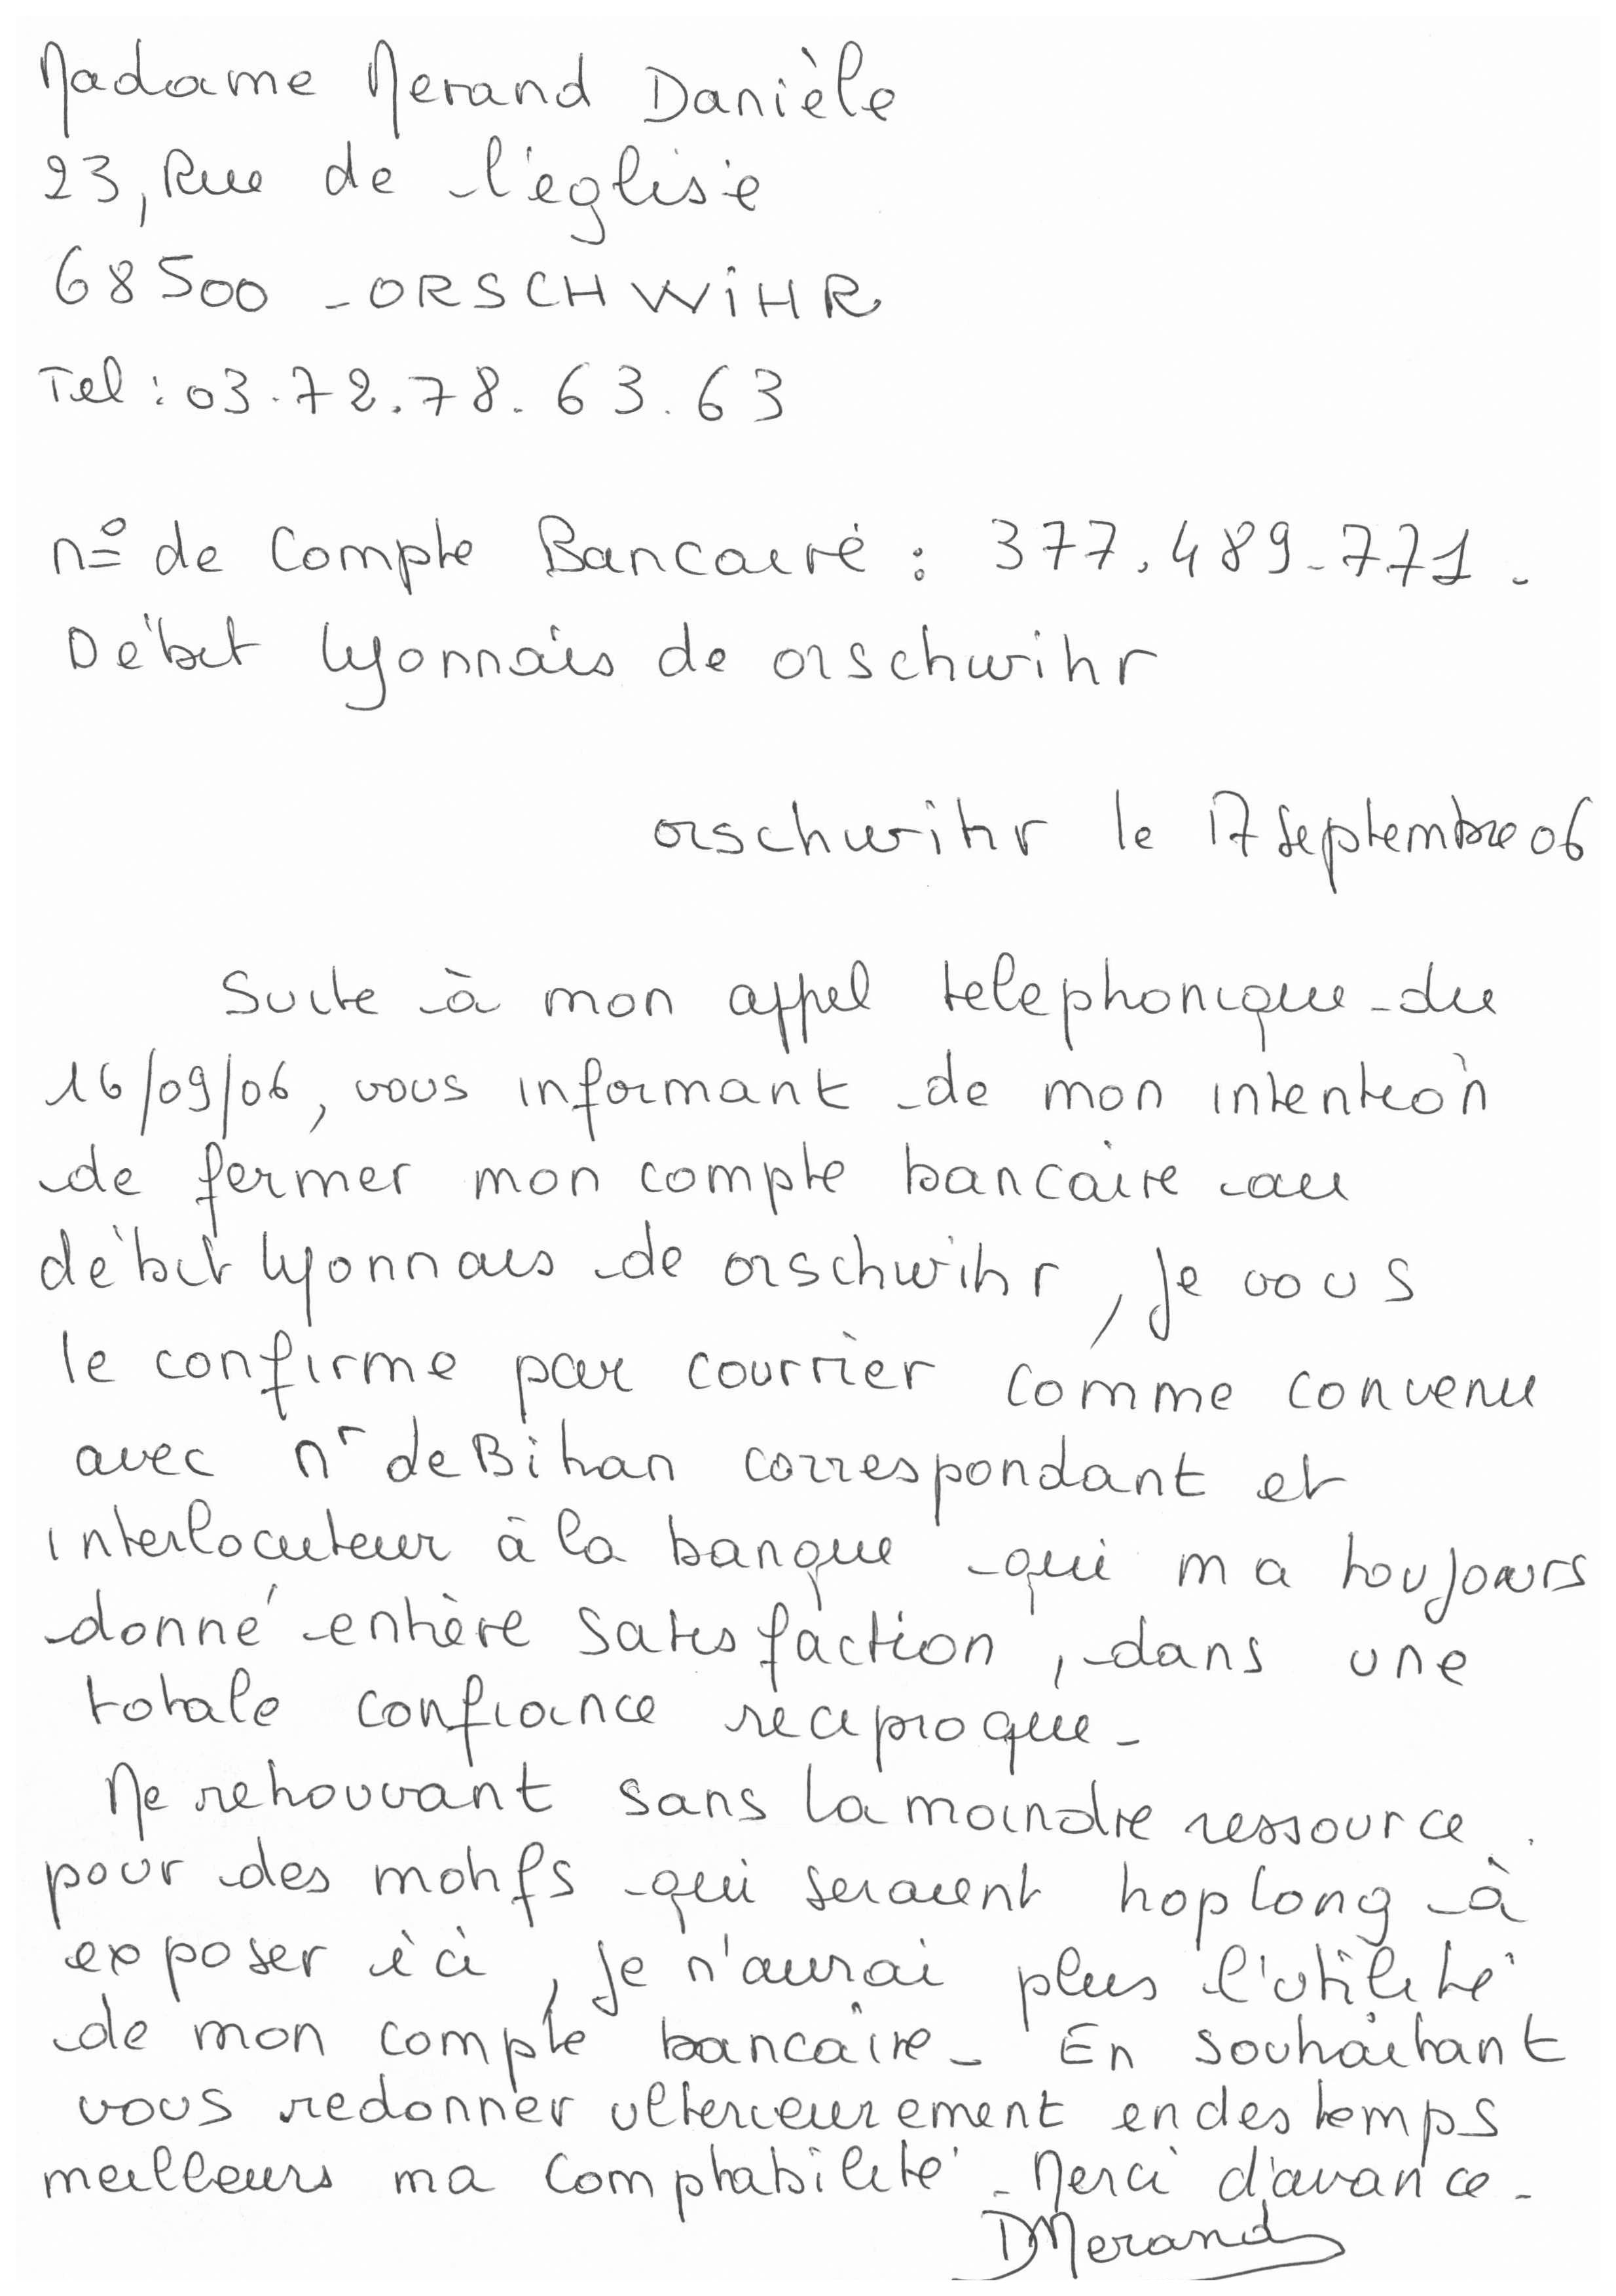 Madame Merand Danièle
23, Rue de l'église
68500 - ORSCHWIHR
Tel : 03.72.78.63.63
n° de Compte Bancaire : 377.489-771.
Débit lyonnais de orschwihr
orschwihr le 17 Septembre 06
Suite à mon appel telephonique du
16/09/06, vous informant de mon intention
de fermer mon compte bancaire au
débit lyonnais de orschwihr, je vous
le confirme par courrier comme convenu
avec Mr de Bihan correspondant et
interlocuteur à la banque qui m a toujours
donné entière satisfaction, dans une
totale confiance reciproque -
Me retrouvant sans la moindre ressource
pour des motifs qui seraient trop long à
exposer ici, je n'aurai plus l'utilité
de mon compte bancaire - En souhaitant
vous redonner ulterieurement en des temps
meilleurs ma comptabilité - Merci d'avance -
DMerand